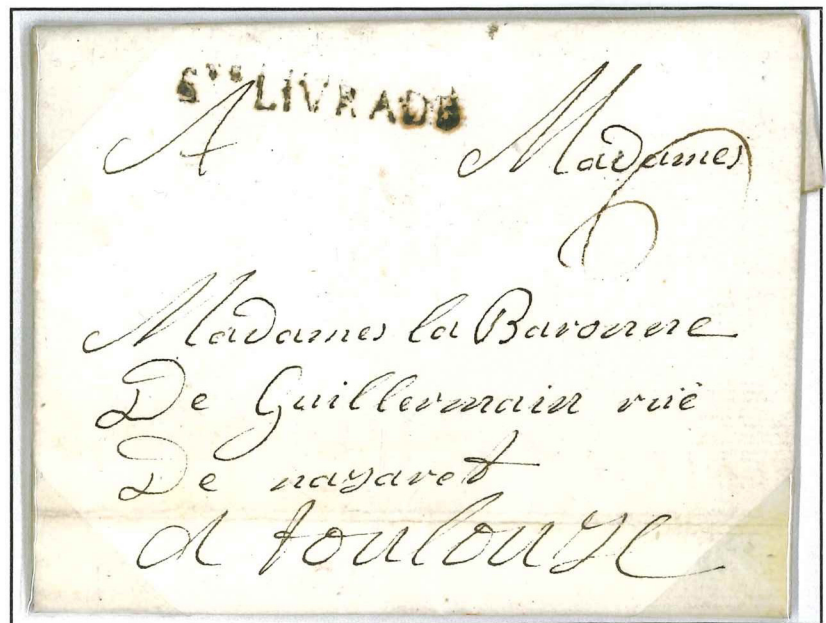 Ste LIVRADE
A Madame
Madame la Baronne
De Guillermain ruë
De nazaret
A toulouze